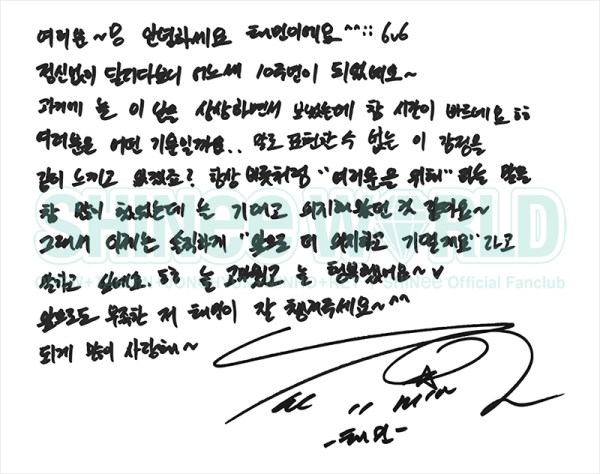 여러분~ 안녕하세요 태민이에요 ^^;; 6v6
정신없이 달리다보니 어느새 10주년이 되었네요~
과거에 늘 이 날을 상상하면서 보냈는데 참 시간이 빠르네요 ㅎㅎ
여러분은 어떤 기분일까요.. 말로 표현할 수 없는 이 감정을
같이 느끼고 있겠죠? 항상 버릇처럼 "여러분을 위해" 라는 말을
참 많이 했었는데 늘 기대고 의지해왔던 것 같아요~
SHINee WORLD
그래서 이제는 솔직하게 "앞으로 더 의지하고 기댈게요" 라고
SHINee Official Fanclub
말하고 싶네요. 늘 고마웠고 늘 행복했어요~ v
앞으로도 부족한 저 태민이 잘 챙겨주세요~ ^^
되게 많이 사랑해~
-태민-